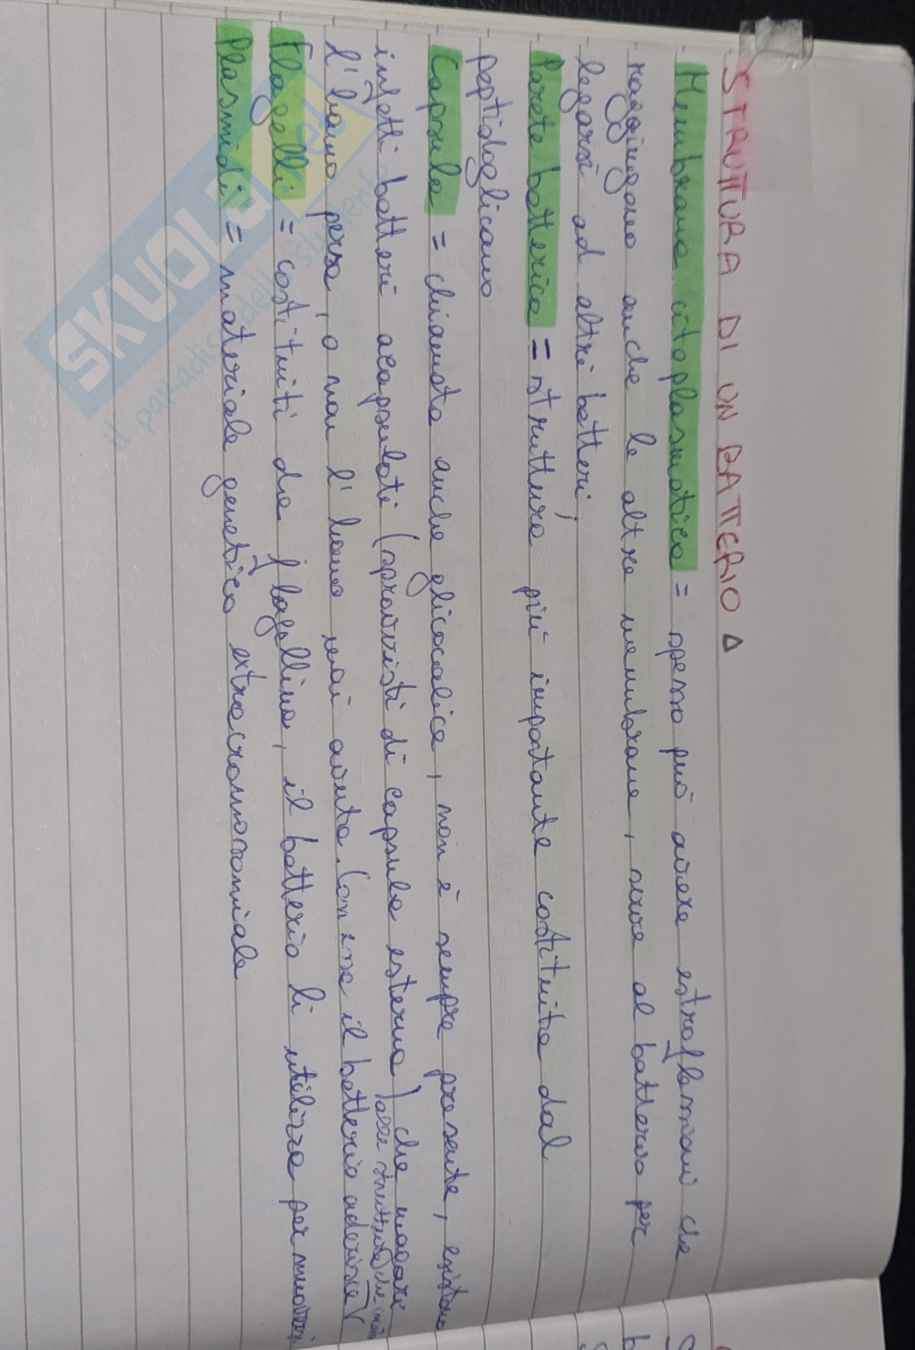 STRUTTURA DI UN BATTERIO
Membrana citoplasmatica = spesso può avere estroflessioni che
raggiungono anche le altre membrane, serve al batterio per
legarsi ad altri batteri;
Parete batterica = struttura più importante costituita dal
peptidoglicano
Capsula = chiamata anche glicocalice, non è sempre presente, esistono
infatti batteri acapsulati (sprovvisti di capsula esterna) che magari
l'hanno persa, o non l'hanno mai avuta. Con essa il batterio aderisce
alle strutture che
Flagelli = costituiti da flagellina, il batterio li utilizza per muoversi
Plasmidi = materiale genetico extracromosomiale
SKUOLA
il paradiso dello studente